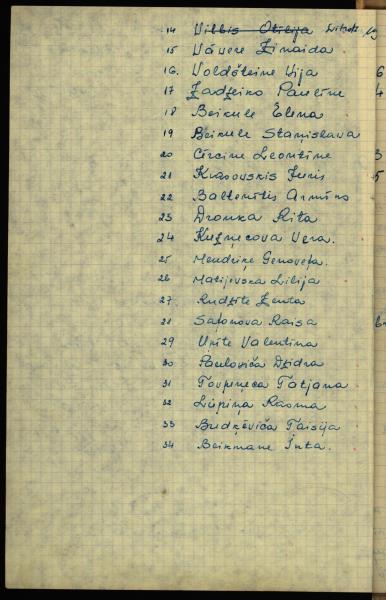 14 Vilbis Otilija
15 Vāvere Zinaida
16. Voldšteine Vija
17 Zadzeiko Pauline
18 Beikule Elena
19 Beikule Staņislava
20 Circine Leontine
21 Krasovskis Juris
22 Baltmitis Armins
23 Dronka Rita
24 Kuzņecova Vera.
25 Mendriņe Genovefa.
26 Matijevska Lilija
27. Rudzīte Zenta
28 Safonova Raisa
29 Upīte Valentina
30 Pavloviča Dzidra
31 Tatjana
32 Lūpiņa Rasma
33 Budķēviča Taisija
34 Beikmane Inta.